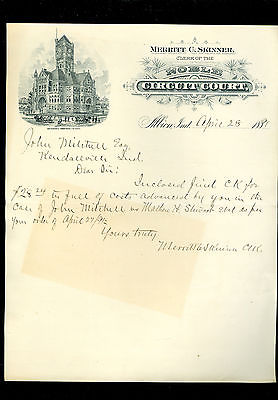 MERRITT C. SKINNER,
CLERK OF THE
NOBLE
CIRCUIT COURT,
Albion, Ind., April 28 188
John Mitchell Esq
Kendallville Ind.
Dear Sir:
Inclosed find CK for
in full of costs advanced by you in the
Case of John Mitchell vs et al as per
your order of April 27
Yours truly
Merritt C Skinner Clk